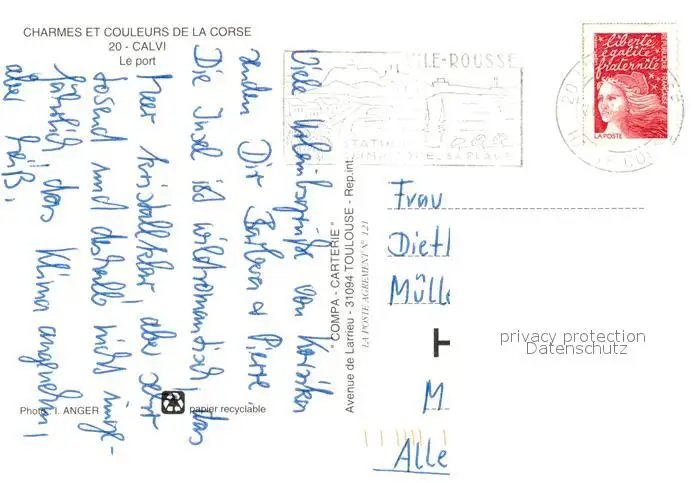 CHARMES ET COULEURS DE LA CORSE
20 - CALVI
Le port
Viele Urlaubsgrüße von Korsika
senden Dir Barbara & Pierre
Die Insel ist wildromantisch, das
Meer kristallklar aber sehr
tosend und deshalb nicht unge-
fährlich, das Klima angenehm,
aber heiß.
Photo : I. ANGER
papier recyclable
" COMPA - CARTERIE "
Avenue de Larrieu - 31094 TOULOUSE - Rep.int.
LA POSTE AGREMENT N° 121
ILE-ROUSSE
STATION
SA PLAGE
liberté
égalité
fraternité
LA POSTE
Frau
Dietl
Mülle
M
Alle
privacy protection
Datenschutz